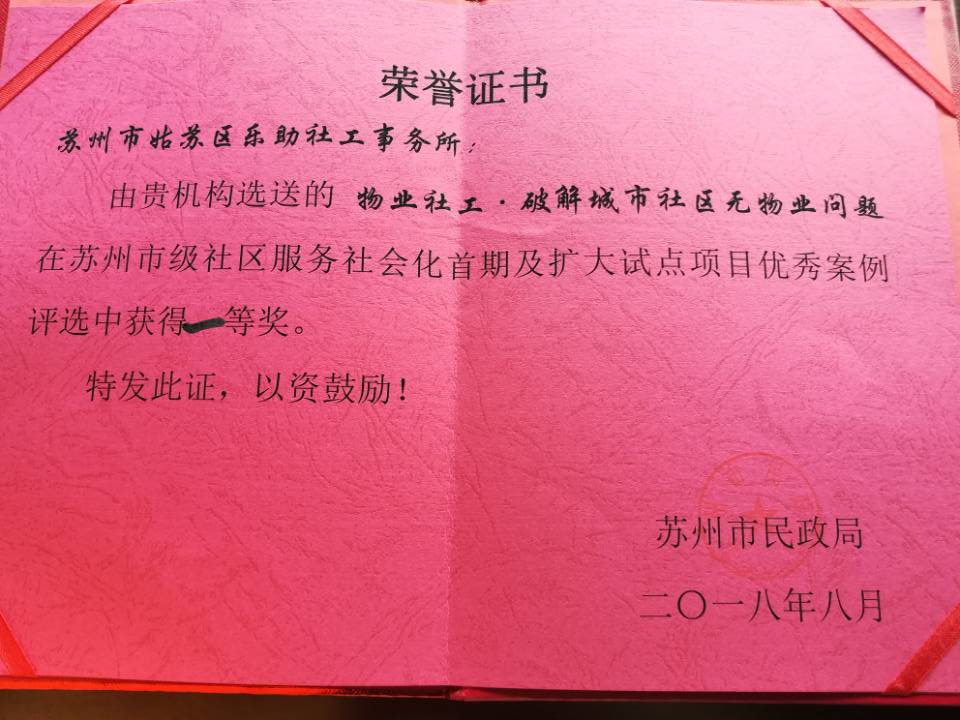 荣誉证书
苏州市姑苏区乐助社工事务所：
由贵机构选送的 物业社工·破解城市社区无物业问题
在苏州市级社区服务社会化首期及扩大试点项目优秀案例
评选中获得一等奖。
特发此证，以资鼓励！
苏州市民政局
二〇一八年八月